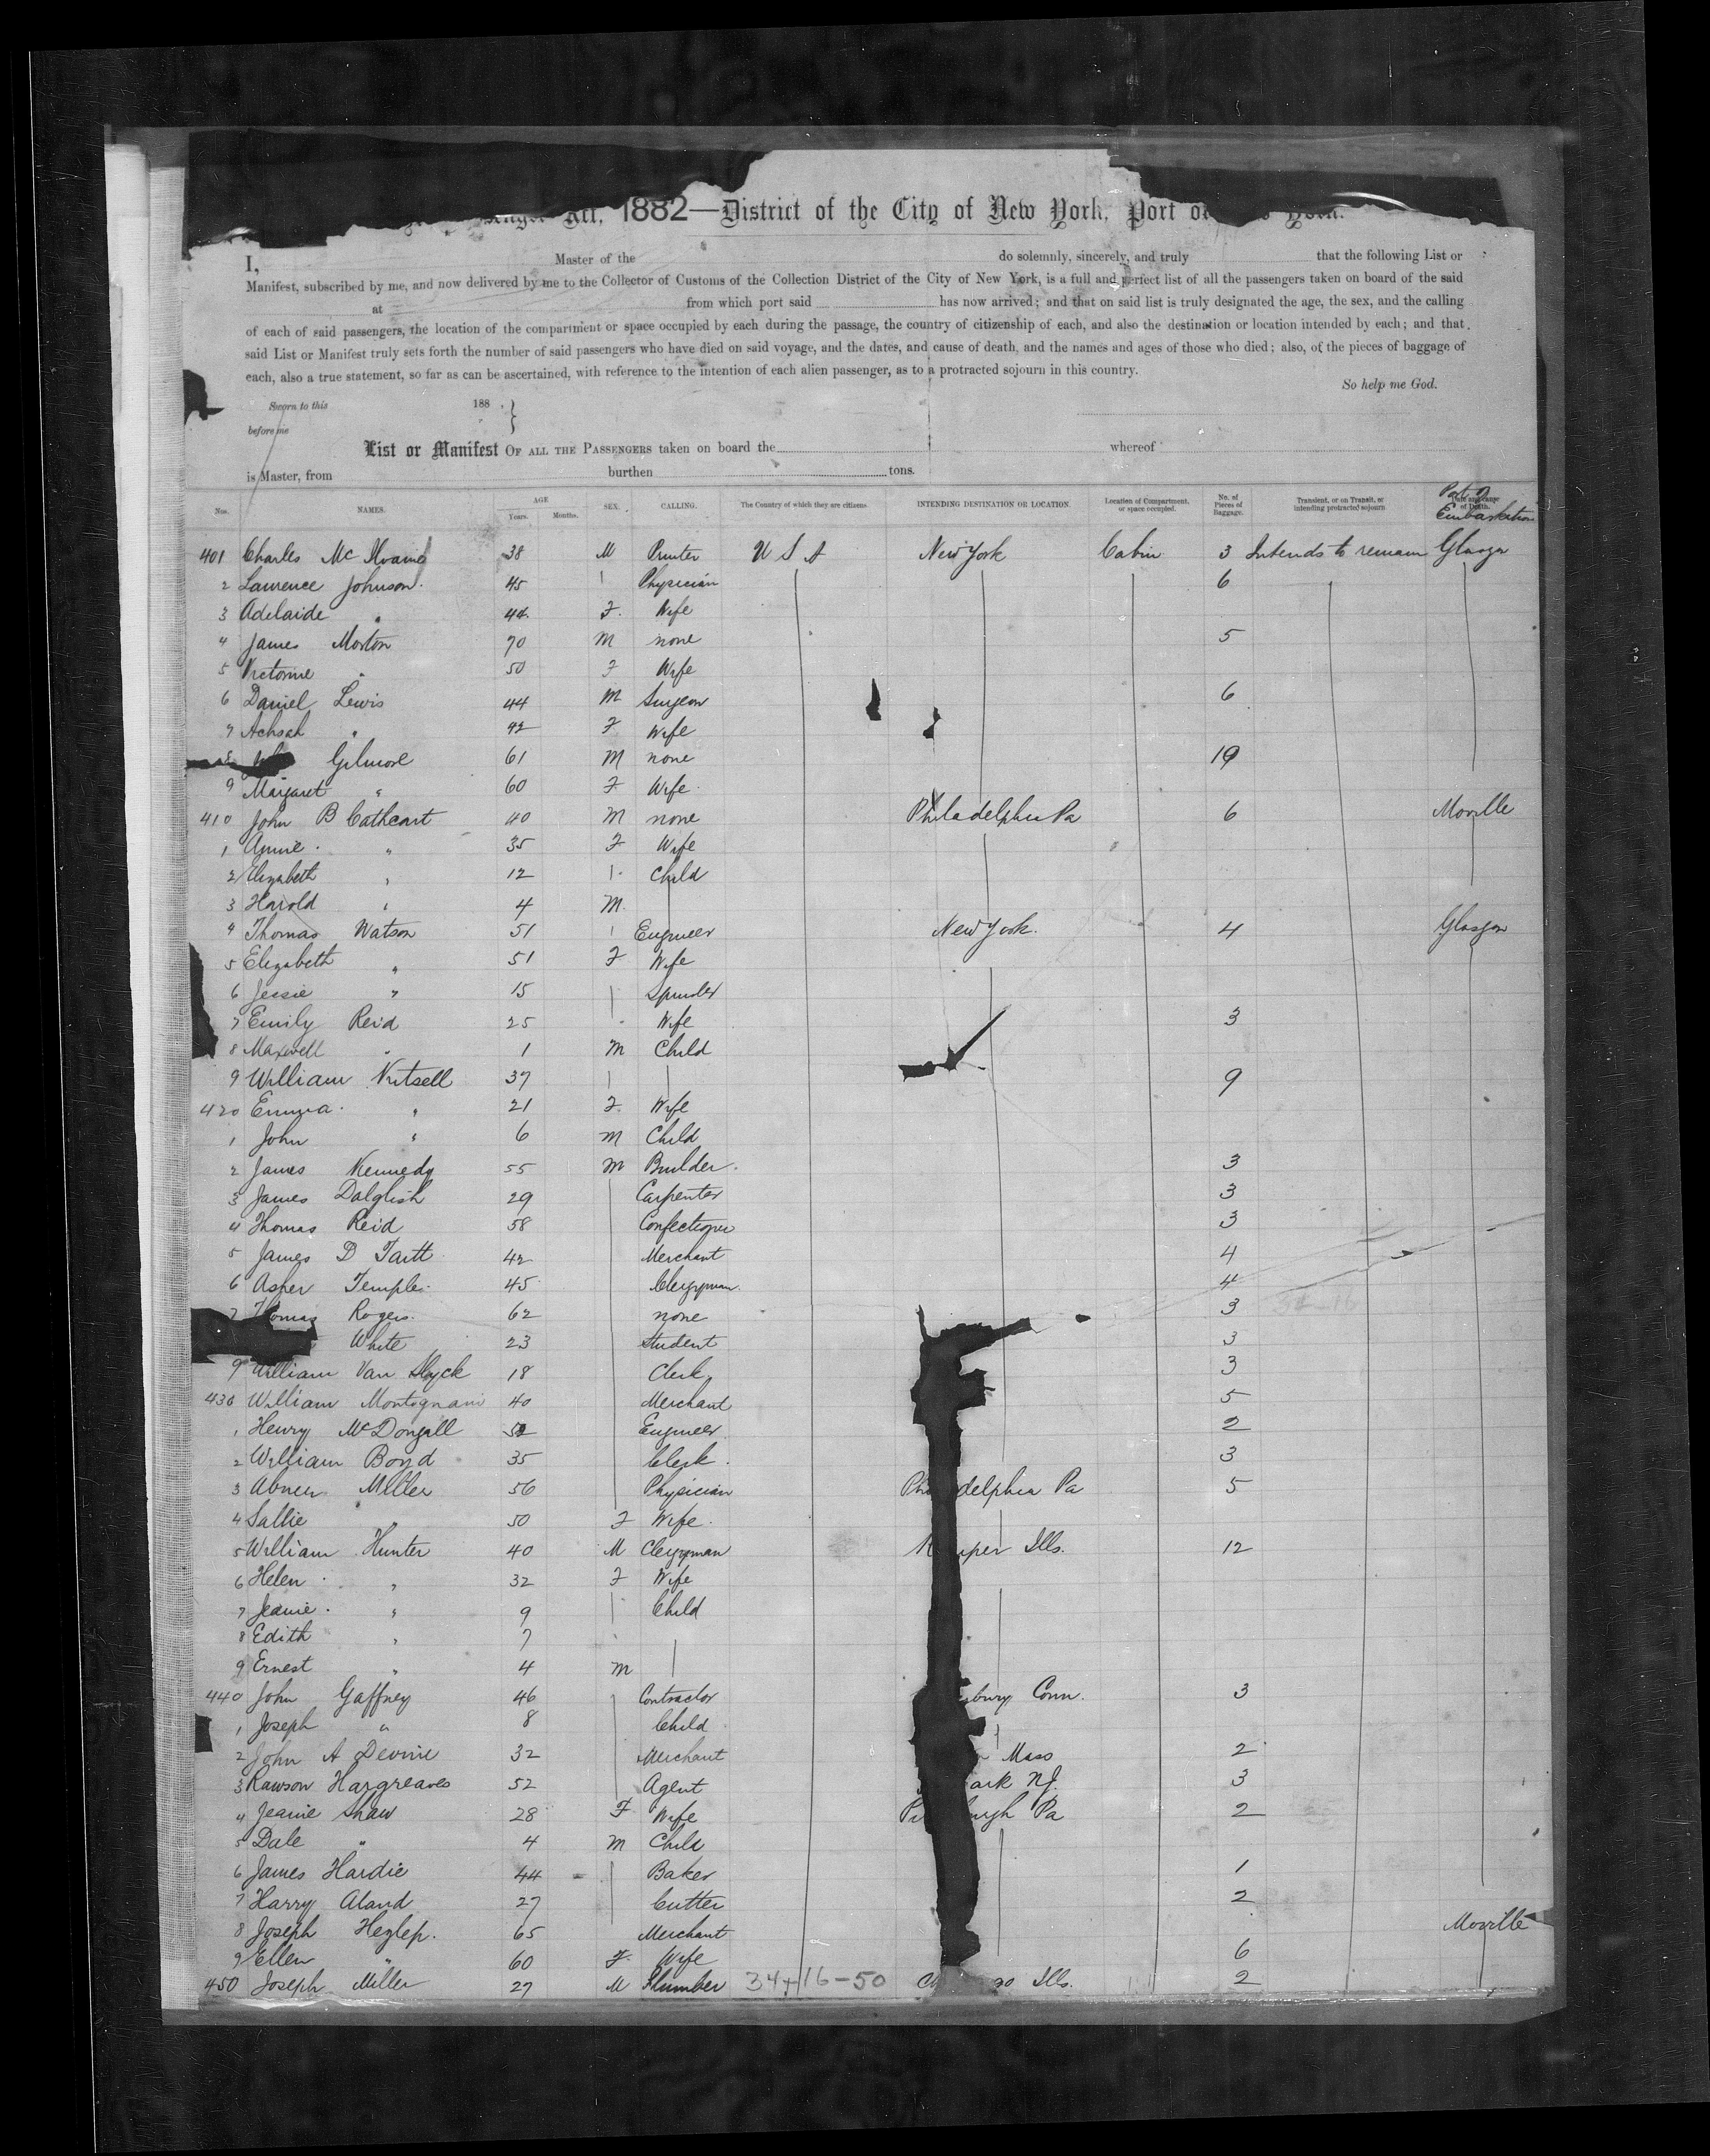 Act, 1882—District of the City of New York, Port of
I, Master of the do solemnly, sincerely, and truly that the following List or
Manifest, subscribed by me, and now delivered by me to the Collector of Customs of the Collection District of the City of New York, is a full and perfect list of all the passengers taken on board of the said
at from which port said has now arrived; and that on said list is truly designated the age, the sex, and the calling
of each of said passengers, the location of the compartment or space occupied by each during the passage, the country of citizenship of each, and also the destination or location intended by each; and that
said List or Manifest truly sets forth the number of said passengers who have died on said voyage, and the dates, and cause of death, and the names and ages of those who died; also, of the pieces of baggage of
each, also a true statement, so far as can be ascertained, with reference to the intention of each alien passenger, as to a protracted sojourn in this country.
So help me God.
Sworn to this 188 }
before me
List or Manifest OF ALL THE PASSENGERS taken on board the whereof
is Master, from burthen tons.
Nos. NAMES. AGE Years. Months. SEX. CALLING. The Country of which they are citizens. INTENDING DESTINATION OR LOCATION. Location of Compartment, or space occupied. No. of Pieces of Baggage. Transient, or on Transit, or intending protracted sojourn Port of Embarkation
401 Charles 38 M Printer U S A New York Cabin 3 Intends to remain Glasgow
2 Laurence Johnson. 45 Physician 6
3 Adelaide " 44 F. Wife
4 James Morton 70 M none 5
5 Victorine " 50 F Wife
6 Daniel Lewis 44 M Surgeon 6
7 Achsah " 42 F Wife
8 Gilmore 61 M none 19
9 Margaret " 60 F Wife
410 John B Cathcart 40 M none Philadelphia Pa 6 Moville
1 Annie " 35 F Wife
2 Elizabeth " 12 Child
3 Harold " 4 M.
4 Thomas Watson 51 Engineer New York. 4 Glasgow
5 Elizabeth " 51 F Wife
6 Jessie " 15 Spinster
7 Emily Reid 25 Wife 3
8 Maxwell " 1 M Child
9 William Nutsell 37 9
420 Emma " 21 F. Wife
1 John " 6 M Child
2 James Kennedy 55 M Builder. 3
3 James Dalglish 29 Carpenter 3
4 Thomas Reid 58 Confectioner 3
5 James D Tartt 42 Merchant 4
6 Asher Temple 45 Clergyman. 4
7 Thomas Rogers. 62 none 3
White 23 Student 3
9 William Van Slyck 18 Clerk 3
430 William Montignani 40 Merchant 5
1 Henry McDougall Engineer 2
2 William Boyd 35 Clerk. 3
3 Abner Miller 56 Physician delphia Pa 5
4 Sallie " 50 F Wife.
5 William Hunter 40 M Clergyman Ills. 12
6 Helen " 32 F Wife
7 Jeanie " 9 Child
8 Edith " 7
9 Ernest " 4 M
440 John Gaffney 46 Contractor bury Conn. 3
1 Joseph " 8 Child
2 John A Devine 32 Merchant Mass 2
3 Rawson Hargreaves 52 Agent ark NJ. 3
4 Jeanie Shaw 28 F Wife burgh Pa 2
5 Dale " 4 M Child
6 James Hardie 44 Baker 1
7 Harry Aland 27 Cutter 2
8 Joseph Hezlep. 65 Merchant Moville
9 Ellen " 60 F. Wife 6
450 Joseph Miller 27 M Plumber 34+16-50 Ch go Ills. 2